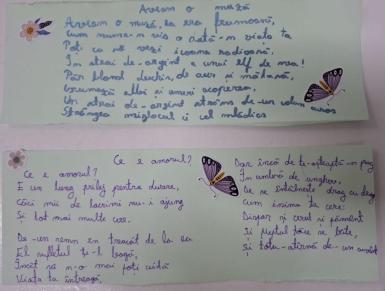 Aveam o muză
Aveam o muză, ea era frumoasă,
Cum numa-n vis o dată-n viața ta
Poți ca să vezi icoana radioasă,
În strai de-argint a unui elf de nea!
Păr blond deschis, de aur și mătasă,
Grumazii albi și umeri acoperea,
Un strai de-argint strâns de-un colan auros
Strângea mijlocul ei cel mlădios
Ce e amorul?
Ce e amorul?
E un lung prilej pentru durere,
Căci mii de lacrimi nu-i ajung
Și tot mai multe cere.
De-un semn în treacăt de la ea
El sufletul ți-l leagă,
Încât să n-o mai poți uita
Viața ta întreagă.
Dar încă de te-așteaptă-n prag
În umbră de unghere,
De se-ntâlnește drag cu drag
Cum inima ta cere:
Dispar și ceruri și pământ
Și pieptul tău se bate,
Și totu-atârnă de-un cuvânt